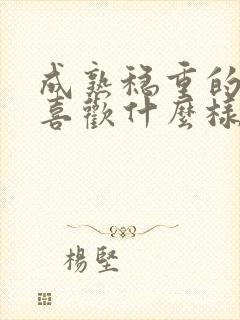 成熟穩重的
喜歡什麼樣
楊堅